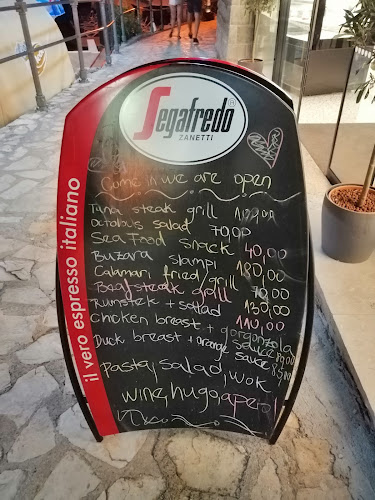 Segafredo
ZANETTI
il vero espresso italiano
Come in we are open
Tuna steak grill
Octobus salad 70,00
Sea Food snack 40,00
Buzara stampi 180,00
Calamari fried/grill 70,00
Beef steak grill 130,00
Rumstek + salad 110,00
Chicken breast + gorgonzola
sauce
Duck breast + orange sauce
Pasta, salad, wok
wine, hugo, aperol